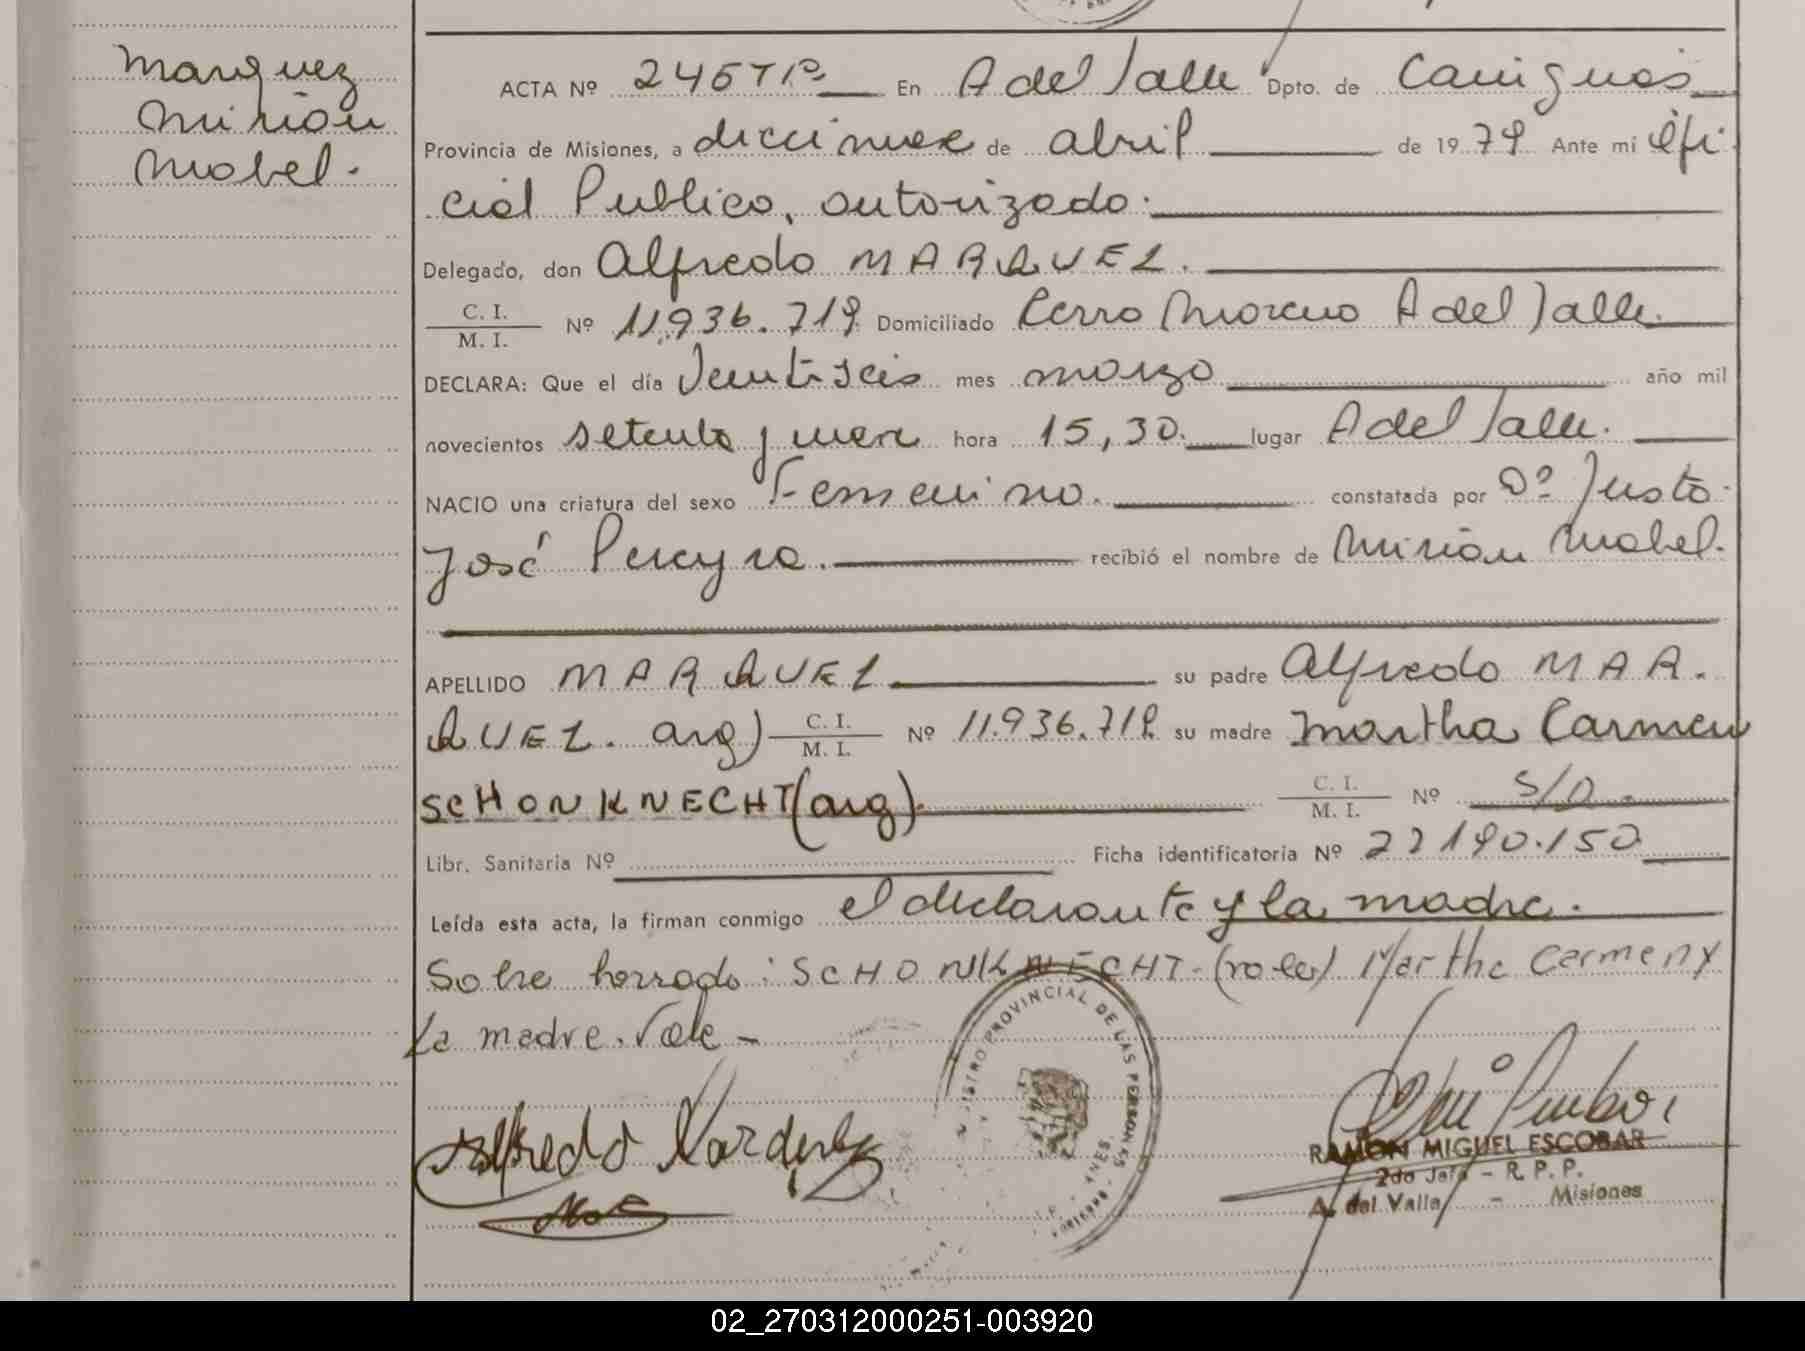 Marquez
Mirian
Mabel.
ACTA Nº 245 Tº En A del Valle Dpto. de Cainguas
Provincia de Misiones, a diecinueve de abril de 1979 Ante mi Ofi
cial Publico, autorizado.
Delegado, don Alfredo MARQUEZ.
C. I.
M. I. Nº 11.936.719 Domiciliado Cerro Moreno A del Valle
DECLARA: Que el día Veintiseis mes marzo año mil
novecientos setenta y nueve hora 15,30. lugar A del Valle.
NACIO una criatura del sexo Femenino. constatada por Dº Justo
José Pereyra. recibió el nombre de Mirian Mabel.
APELLIDO MARQUEZ su padre Alfredo MAR.
QUEZ. arg) C. I. M. I. Nº 11.936.719 su madre Martha Carmen
SCHONKNECHT (arg). C. I. M. I. Nº S/D.
Libr. Sanitaria Nº Ficha identificatoria Nº 22190.150
Leída esta acta, la firman conmigo el declarante y la madre.
Sobre borrado: SCHONKNECHT- Martha Carmen y
la madre. Vale -
Alfredo Marquez
REGISTRO PROVINCIAL DE LAS PERSONAS
RAMON MIGUEL ESCOBAR
2do Jefe - R. P. P.
A. del Valle - Misiones
02_270312000251-003920